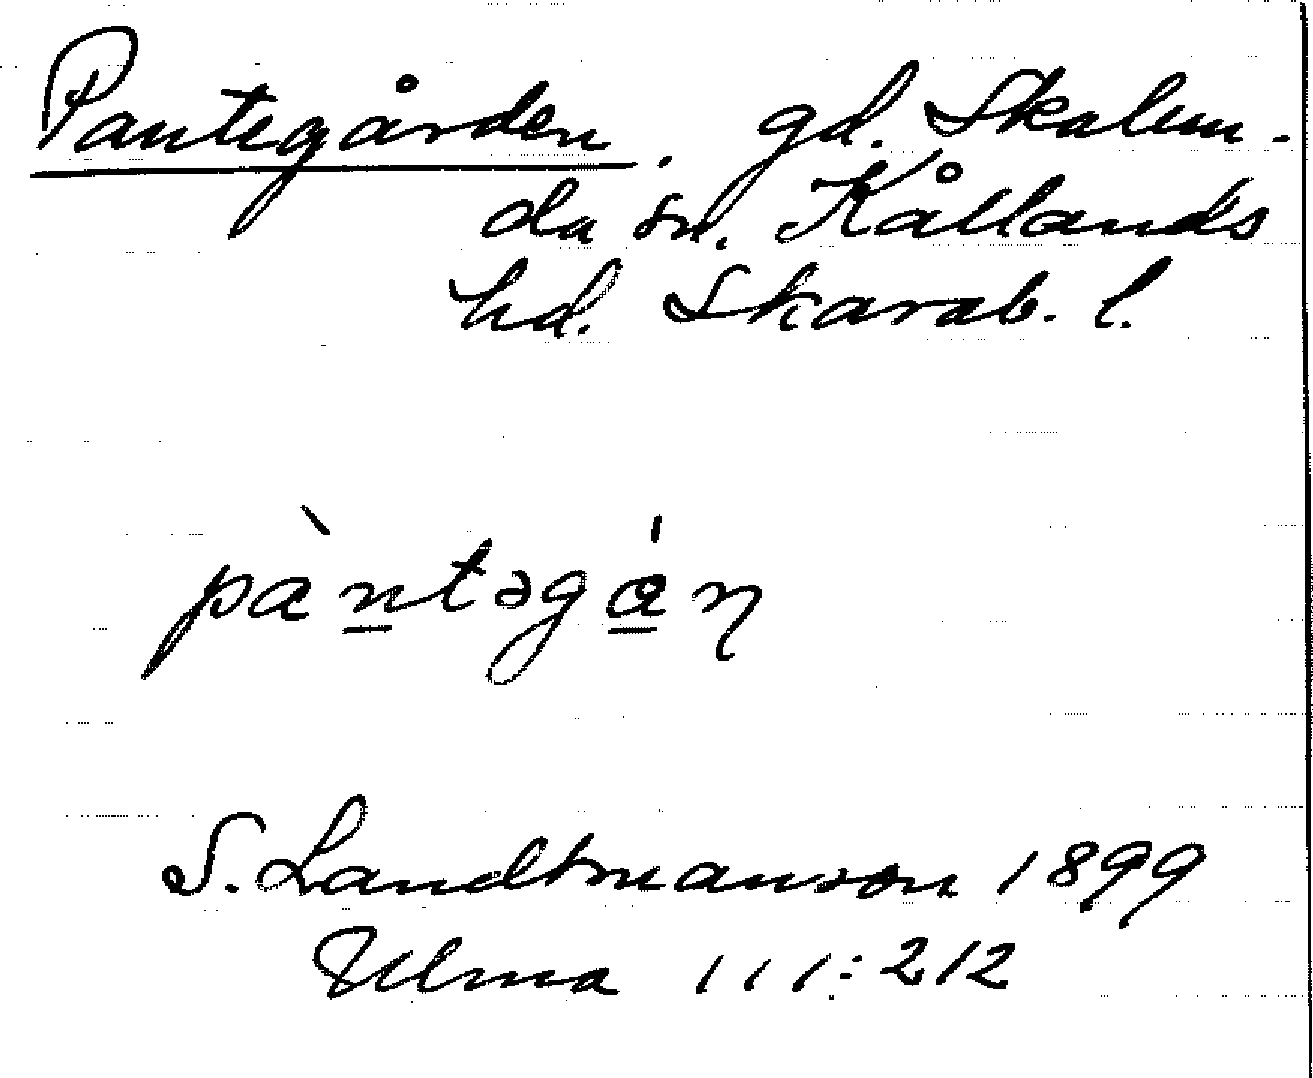 Pantegården. gd. Skalun-
da sn. Kållands
hd. Skarab. l.
pàn̲təgá̲ɳ
S. Landtmanson 1899
Ulma 111:212